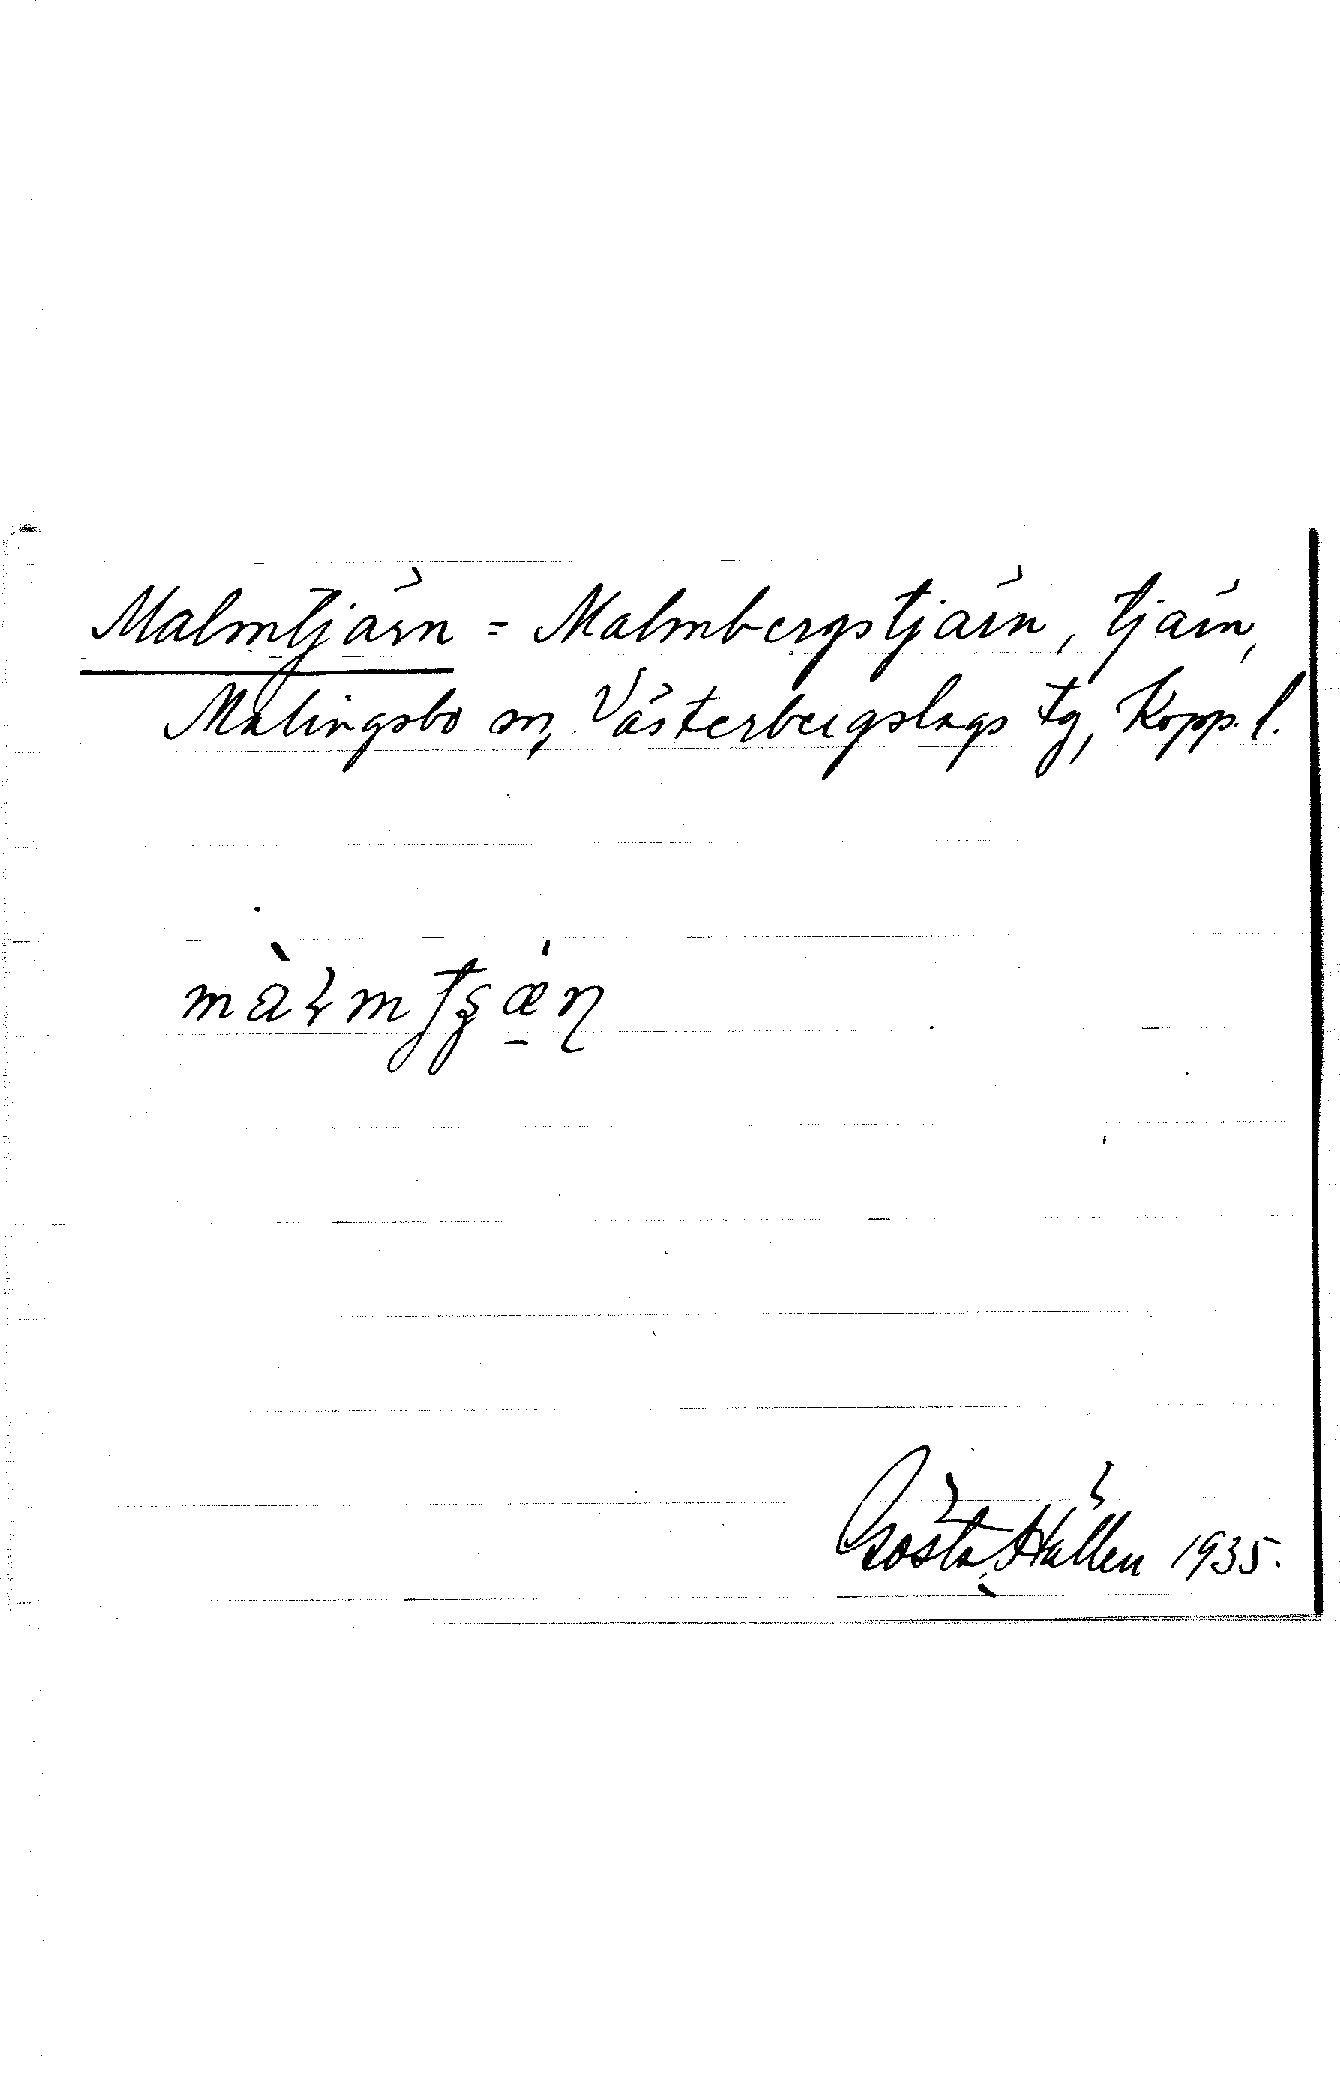 Malmtjärn = Malmbergstjärn, tjärn,
Malingsbo sn, Västerbergslags tg, Kopp. l.
Gösta Hallén 1935.